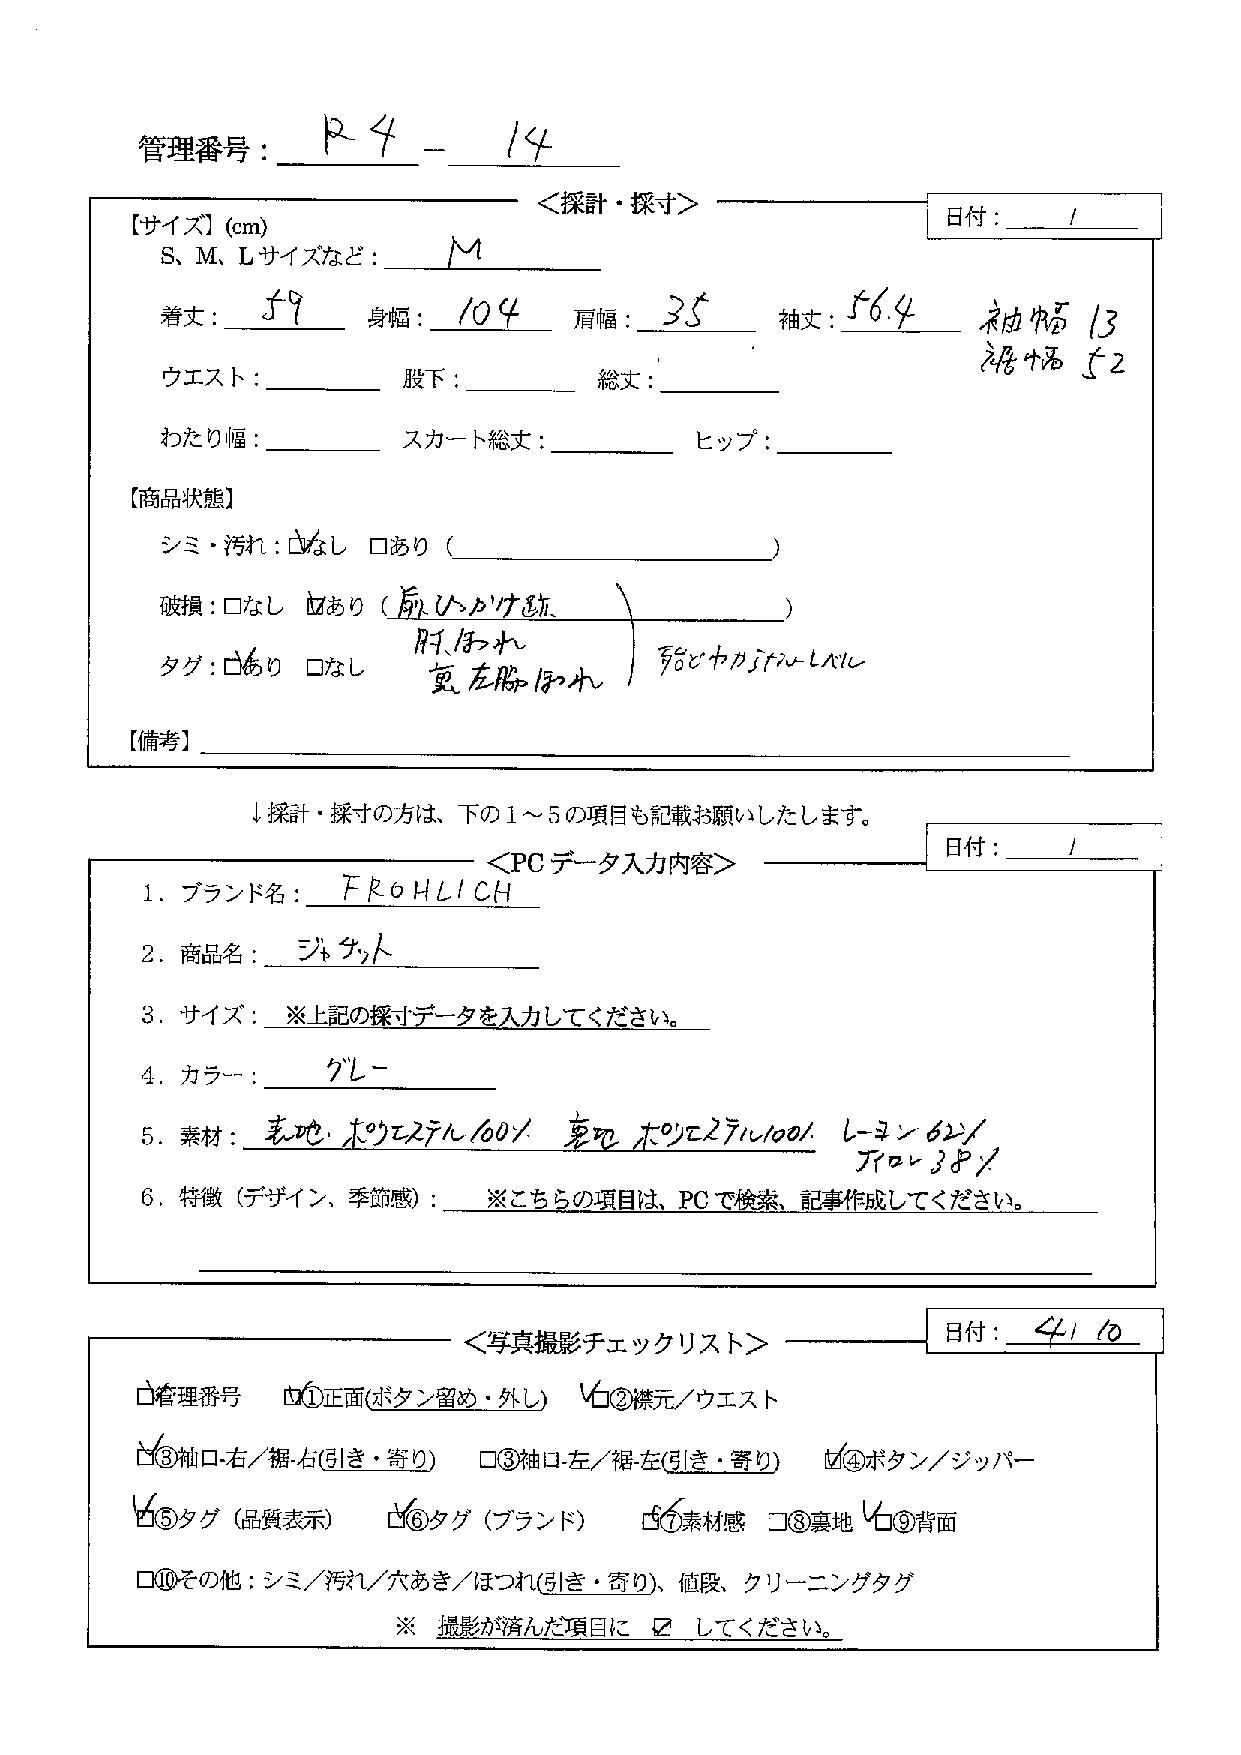 管理番号： R4 － 14
＜採計・採寸＞
日付： /
【サイズ】(cm)
S、M、Lサイズなど： M
着丈： 59 身幅： 104 肩幅： 35 袖丈： 56.4 袖巾幅 13
裾巾幅 52
ウエスト： 股下： 総丈：
わたり幅： スカート総丈： ヒップ：
【商品状態】
シミ・汚れ：☑なし □あり（ ）
破損：□なし ☑あり（前、ひっかけ跡、 ）
肘、ほつれ
タグ：☑あり □なし 裏、左脇、ほつれ 殆どわからないレベル
【備考】
↓採計・採寸の方は、下の１～５の項目も記載お願いしたします。
日付： /
＜PCデータ入力内容＞
1．ブランド名： FROHLICH
2．商品名： ジャケット
3．サイズ： ※上記の採寸データを入力してください。
4．カラー： グレー
5．素材： 表地. ポリエステル100% 裏地 ポリエステル100% レーヨン62%
ナイロン38%
6．特徴（デザイン、季節感）： ※こちらの項目は、PCで検索、記事作成してください。
日付： 4/10
＜写真撮影チェックリスト＞
☑管理番号 ☑①正面(ボタン留め・外し) ☑②襟元／ウエスト
☑③袖口-右／裾-右(引き・寄り) □③袖口-左／裾-左(引き・寄り) ☑④ボタン／ジッパー
☑⑤タグ（品質表示） ☑⑥タグ（ブランド） ☑⑦素材感 □⑧裏地 ☑⑨背面
□⑩その他：シミ／汚れ／穴あき／ほつれ(引き・寄り)、値段、クリーニングタグ
※ 撮影が済んだ項目に ☑ してください。